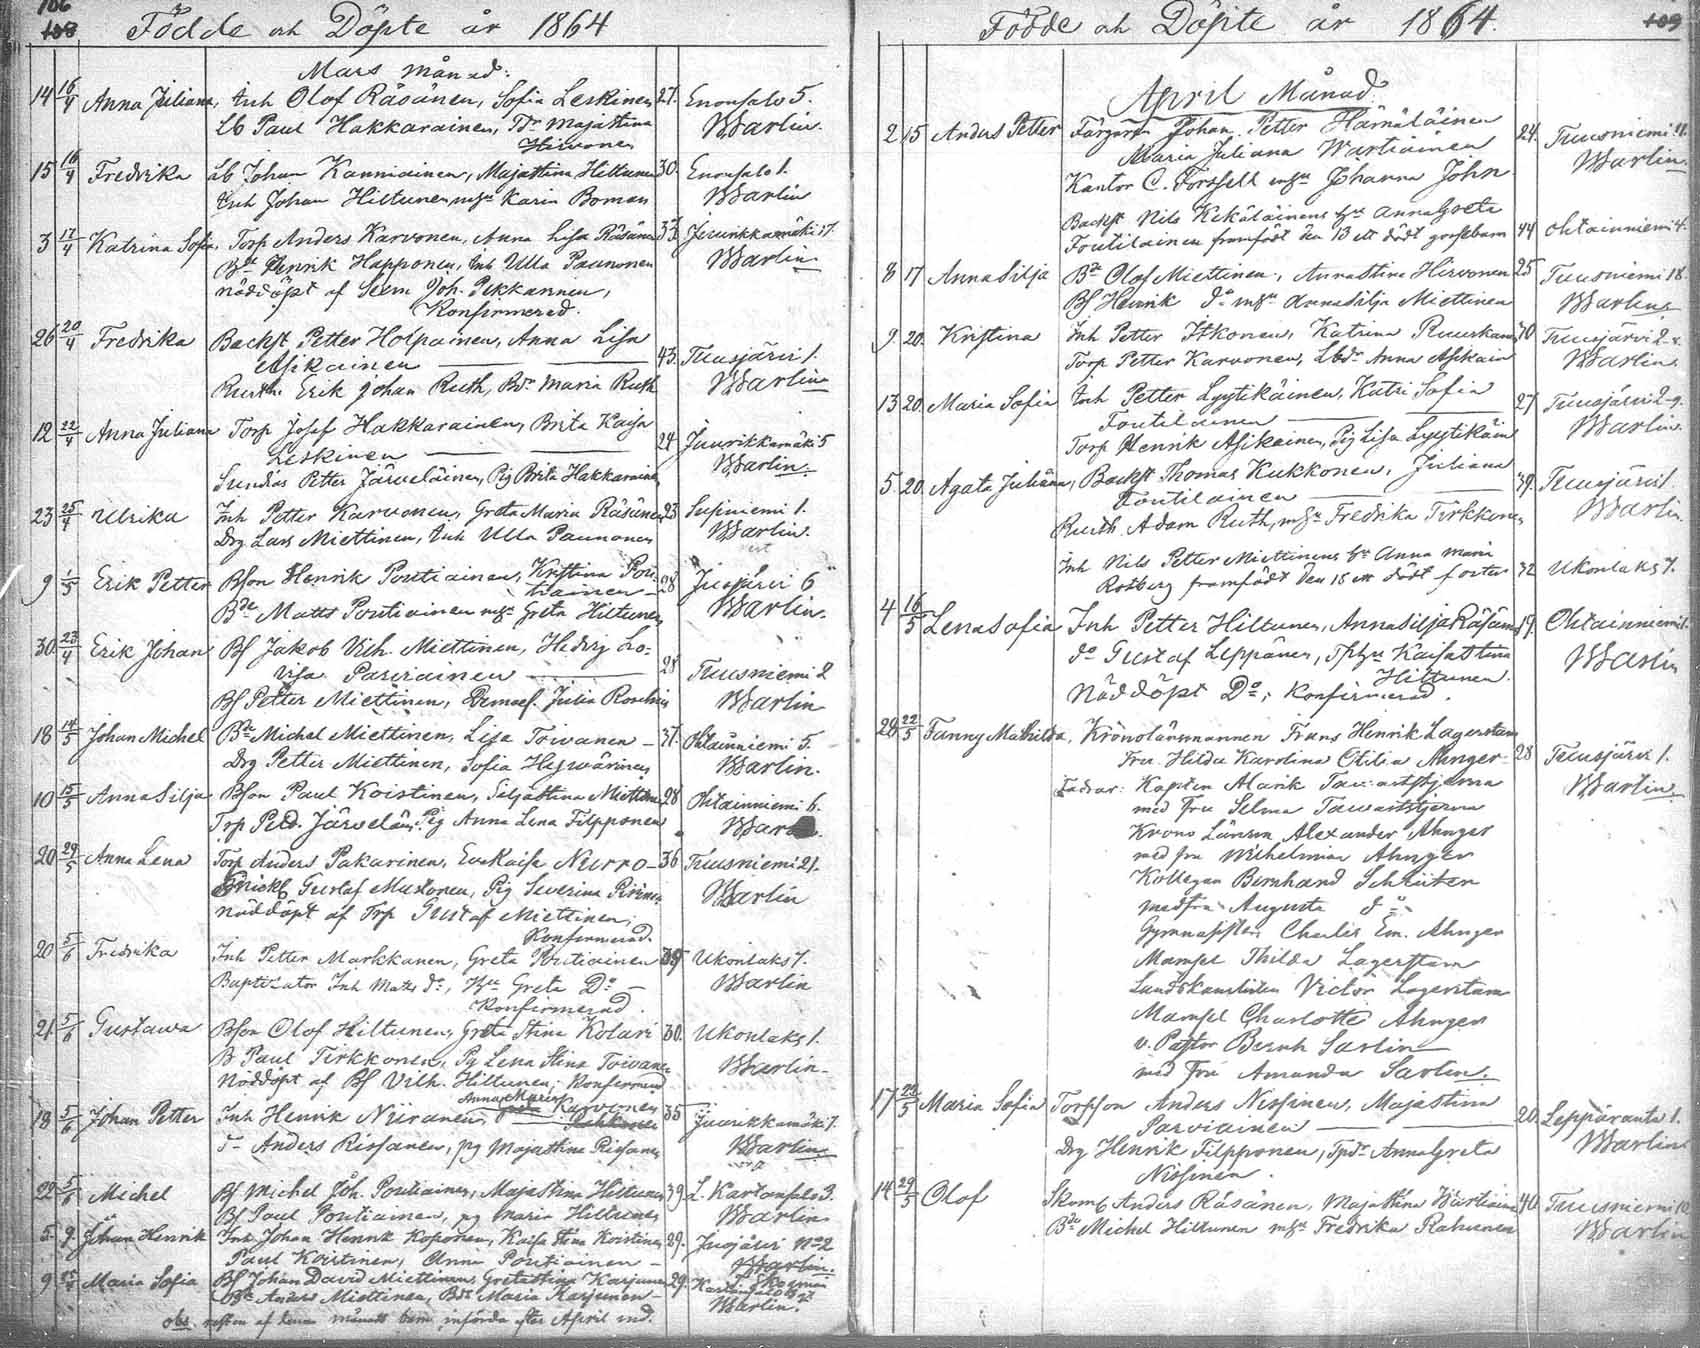 106
108
Födde och Döpte år 1864
Mars månad:
14 16/4 Anna Juliana, Inh Olof Räsänen, Sofia Leskinen 27. Enonsalo 5.
Lb Paul Hakkarainen, Tdr Majastina Warlin.
Hirvonen
15 16/4 Fredrika Lb Johan Kanniainen, Majastina Hiltunen 30. Enonsalo 1.
Inh Johan Hiltunen, mhu Karin Boman Warlin
3 17/4 Katrina Sofia, Torp Anders Karvonen, Anna Lisa Räsänen 33 Juurikkamäki 17.
Henrik Happonen, Inh Ulla Paunonen Warlin
nöddöpt af Joh. Pekkarinen,
Konfirmerad.
26 20/4 Fredrika Backst Petter Holpainen, Anna Lisa
Asikainen 43. Tuusjärvi 1.
Erik Johan Ruth, Bdr Maria Ruth Warlin
12 22/4 Anna Juliana Torp Josef Hakkarainen, Brita Kaisa
Leskinen 24 Juurikkamäki 5
Petter Järveläinen, Pig Brita Hakkarainen Warlin.
23 25/4 Ulrika Inh Petter Karvonen, Greta Maria Räsänen 23 Lupiniemi 1.
Drg Lars Miettinen, Inh Ulla Paunonen Warlin.
9 1/5 Erik Petter Bson Henrik Poutiainen, Kristina Pou-
tiainen 28 Juojärvi 6
Bde Matts Poutiainen mhu Greta Hiltunen Warlin.
30. 23/4 Erik Johan Bf Jakob Vilh. Miettinen, Hedvig Lo-
visa Parviainen 28 Tuusniemi 2
Bf Petter Miettinen, Demsel. Julia Warlin
18 14/5 Johan Michel Bde Michel Miettinen, Lisa Toivanen 37. Ohtainniemi 5.
Drg Petter Miettinen, Sofia Hyvärinen Warlin.
10 15/5 Anna Silja Bson Paul Koistinen, Siljastina Miettinen 28 Ohtainniemi 6.
Trp Petd. Järveläin, Pig Anna Lena Filpponen Warlin.
20 29/5 Anna Lena Torp Anders Pakarinen, Eva Kaisa Nurro 36 Tuusniemi 21.
Gustaf Mustonen, Pig Severina Pirinen Warlin
nöddöpt af Trp Gustaf Miettinen;
Konfirmerad.
20 5/6 Fredrika Inh Petter Markkanen, Greta Poutiainen 35 Ukonlaks 7.
Baptizator Inh Mats do, Hu Greta Do Warlin
Konfirmerad.
21. 5/6 Gustava Bson Olof Hiltunen, Greta Stina Kolari 30. Ukonlaks 1.
B Paul Tirkkonen, Pg Lena Stina Toivanen Warlin
Nöddöpt af Bf Vilh. Hiltunen; Konfirmerad
18 5/6 Johan Petter Inh Henrik Niiranen, Anna Maria Karvonen 35 Juurikkamäki 7.
Anders Rissanen, pg Majastina Rissanen Warlin
22 5/6 Michel Bf Michel Joh. Poutiainen, Majastina Hiltunen 39 L. Kartansalo 3.
Bf Paul Poutiainen, pg Maria Hiltunen Warlin
5. 9. Johan Henrik Inh Johan Henrik Koponen, Kaisa Stina Koistinen 29. Juojärvi No 2
Paul Koistinen, Anna Poutiainen Warlin.
9 Maria Sofia Bf Johan David Miettinen, Gretastina Karjunen 29.
Bde Anders Miettinen, Bdr Maria Karjunen Warlin.
obs. resten af denna månads barn införda efter April md.
109
Födde och Döpte år 1864.
April Månad
2 15 Anders Petter Färgaren Johan Petter Hämäläinen 24. Tuusniemi 11.
Maria Juliana Wartiainen Warlin.
Kantor C. Forssell mhu Johanna John
Backst Nils Kekäläinens hu Anna Greta 44 Ohtainniemi 4.
Poutilainen framfödt den 13 ett dödt gossebarn
8 17 Anna Silja Bde Olof Miettinen, Annastina Hirvonen 25 Tuusniemi 18
Bf Henrik do mhu Anna Silja Miettinen Warlin
9 20. Kristina Inh Petter Itkonen, Katrina Ruuskanen 40 Tuusjärvi 2.
Torp Petter Karvonen, Lbdr Anna Asikain Warlin
13 20. Maria Sofia Inh Petter Lyytikäinen, Katri Sofia
Poutilainen 27 Tuusjärvi 2.
Torp Henrik Asikainen, Pig Lisa Lyytikäin Warlin.
5. 20. Agata Juliana, Backst Thomas Kukkonen, Juliana
Poutilainen 39. Tuusjärvi 1.
Adam Ruth, mhu Fredrika Tirkkonen Warlin.
Inh Nils Petter Miettinens hu Anna Maria
Rosberg framfödt den 15 ett dödt foster 32 Ukonlaks 7.
4 16/5 Lena Sofia Inh Petter Hiltunen, Anna Silja Räsänen 19. Ohtainniemi
do Gustaf Leppänen, Kaisastina Warlin
Hiltunen.
Nöddöpt Do; Konfirmerad.
28 22/5 Fanny Mathilda, Kronolänsmannen Frans Henrik Lagerstam
Fru Hilda Karolina Otilia Ahnger 28 Tuusjärvi 1.
Fadrar: Kapten Alarik Tawaststjerna Warlin
med fru Selma Tawaststjerna
Krono Länsm Alexander Ahnger
med fru Wilhelmina Ahnger
Kollegan Bernhard Schröter
med fru Augusta do
Gymnasisten Charles Em. Ahnger
Mamsel Thilda Lagerstam
Landskanslisten Victor Lagerstam
Mamsel Charlotte Ahnger
v. Pastor Bernh Sarlin
med fru Amanda Sarlin.
17 22/5 Maria Sofia Torpson Anders Nissinen, Majastina
Parviainen 20. Leppäranta 1.
Drg Henrik Filpponen, Tpdr Anna Greta Warlin
Nissinen.
14 29/5 Olof Skom Anders Räsänen, Majastina Wartiainen 40. Tuusniemi 10
Bde Michel Hiltunen mhu Fredrika Rahunen Warlin